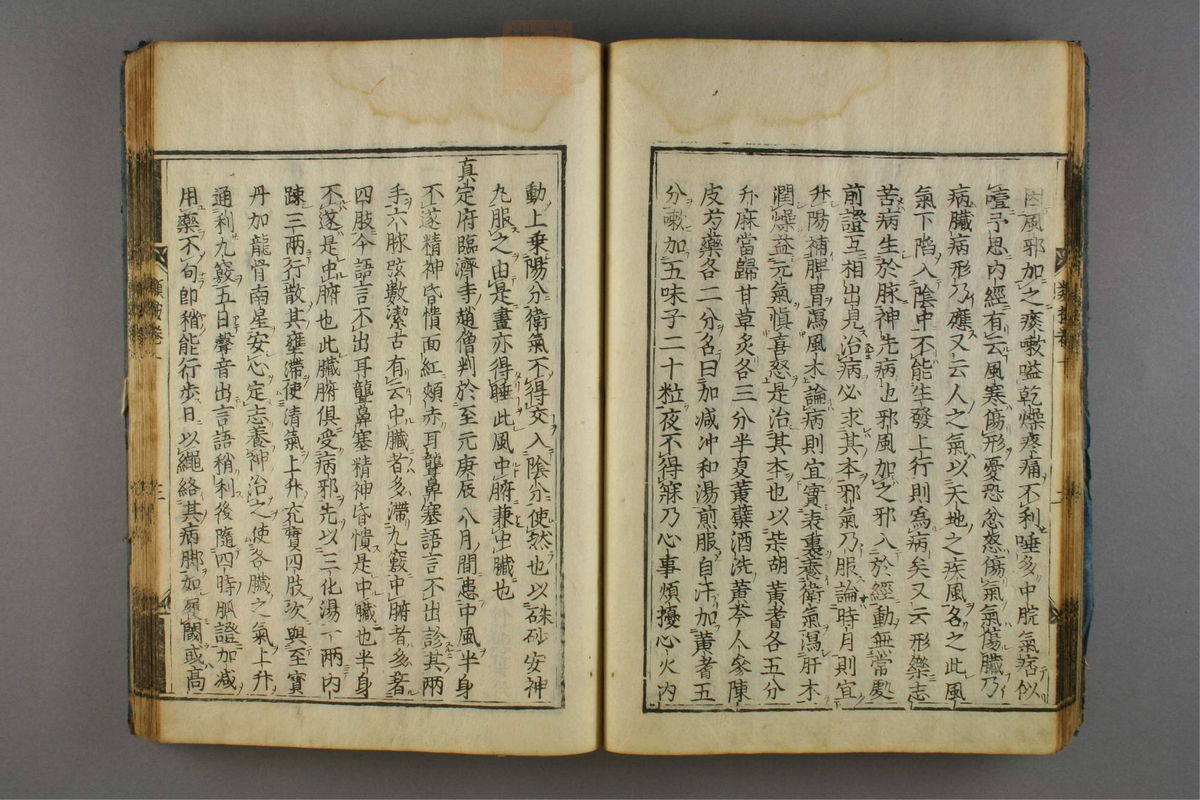 因風邪加之痰嗽嗌乾燥疼痛不利唾多中脘氣痞似
噎予思内經有云風寒傷形憂恐忿怒傷氣氣傷臟乃
病臟病形乃應又云人之氣以天地之疾風名之此風
氣下陷入陰中不能生發上行則為病矣又云形樂志
苦病生於脉神先病也邪風加之邪入於經動無常處
前證互相出見治病必求其本邪氣乃服論時月則宜
升陽補脾胃瀉風木論病則宜實表裏養衛氣瀉肝木
潤燥益元氣慎喜怒是治其本也以柴胡黄耆各五分
升麻當歸甘草炙各三分半夏黄蘗酒洗黄芩人參陳
皮芍藥各二分名曰加减冲和湯煎服自汗加黄耆五
分嗽加五味子二十粒夜不得寐乃心事煩擾心火内
動上乗陽分衛氣不得交入陰分使然也以硃砂安神
丸服之由是晝亦得睡此風中腑兼中臟也
真定府臨濟寺趙僧判於至元庚辰八月間患中風半身
不遂精神昏憒面紅頰赤耳聾鼻塞語言不出診其兩
手六脉弦數潔古有云中臟者多滯九竅中腑者多著
四肢今語言不出耳聾鼻塞精神昏憒是中臟也半身
不遂是中腑也此臟腑俱受病邪先以三化湯一兩内
踈三兩行散其壅滯使清氣上升充實四肢次與至寳
丹加龍骨南星安心定志養神治之使各臟之氣上升
通利九竅五日聲音出言語稍利後隨四時脈證加减
用藥不旬即稍能行歩日以繩絡其病脚如履閾或高